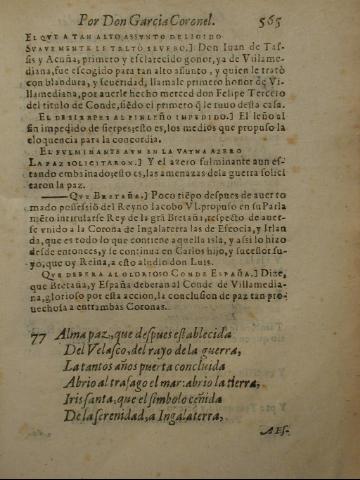 Por Don Garcia Coronel. 565
EL QVE A TAN ALTO ASSVNTO DELIGIDO
SVAVEMENTE LE TRATÓ SEVERO.] Don Iuan de Taſ-
ſis y Acuña, primero y eſclarecido honor, ya de Villame-
diana, fue eſcogido para tan alto aſſunto, y quien le tratò
con blandura, y ſeueridad, llamale primero honor dẽ Vi-
llamediana, por auerle hecho merced don Felipe Tercero
del titulo de Conde, ſiẽdo el primero q̃ le tuuo deſta caſa.
EL DESIERPES AL FIN LEÑO IMPEDIDO.] El leño al
fin impedido de ſierpes; eſto es, los medios que propuſo la
eloquencia para la concordia.
EL FVLMINANTE AVN EN LA VAYNA AZERO
LA PAZ SOLICITARON.] Y el azero fulminante aun eſ-
tando embainado; eſto es, las amenazas de la guerra ſolici
taron la paz.
— QVE BRETAÑA.] Poco tiẽpo deſpues de auer to
mado poſſeſsiõ del Reyno Iacobo VI. propuſo en ſu Parla
mẽto intitularſe Rey de la grã Bretaña, reſpecto de auer-
ſe vnido a la Coron̄a de Ingalaterra las de Eſcocia, y Irlan
da, que es todo lo que contiene aquella isla, y aſsi lo hizo
deſde entonces, y ſe continua en Carlos hijo, y ſuceſſor ſu-
yo, que oy Reina, a eſto aludio don Luis.
QVE DEBERA AL GLORIOSO CONDE ESPAÑA.] Dize,
que Bretaña, y Eſpaña deberan al Conde de Villamedia-
na, glorioſo por eſta accion, la concluſion de paz tan pro-
uechoſa a entrambas Coronas.
77 Alma paz, que deſpues eſtablecida
Del Velaſco, del rayo de la guerra,
La tantos años puerta concluida
Abrio al traſago el mar: abrio la tierra,
Iris ſanta, que el ſimbolo ceñida
De la ſerenidad, a Ingalaterra,